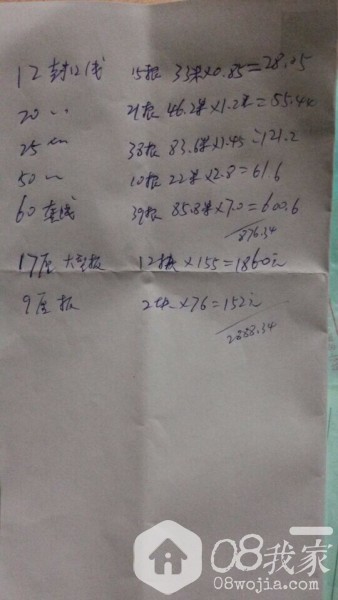 12 封口线 15根 33米×0.85=28.05
20 〃 21根 46.2米×1.2=55.44
25 〃 38根 83.6米×1.45=121.2
50 〃 10根 22米×2.8=61.6
60 套线 39根 85.8米×7.0=600.6
876.34
17厘 大芯板 12块×155=1860元
9厘板 2块×76=152元
2888.34
08我家
08wojia.com